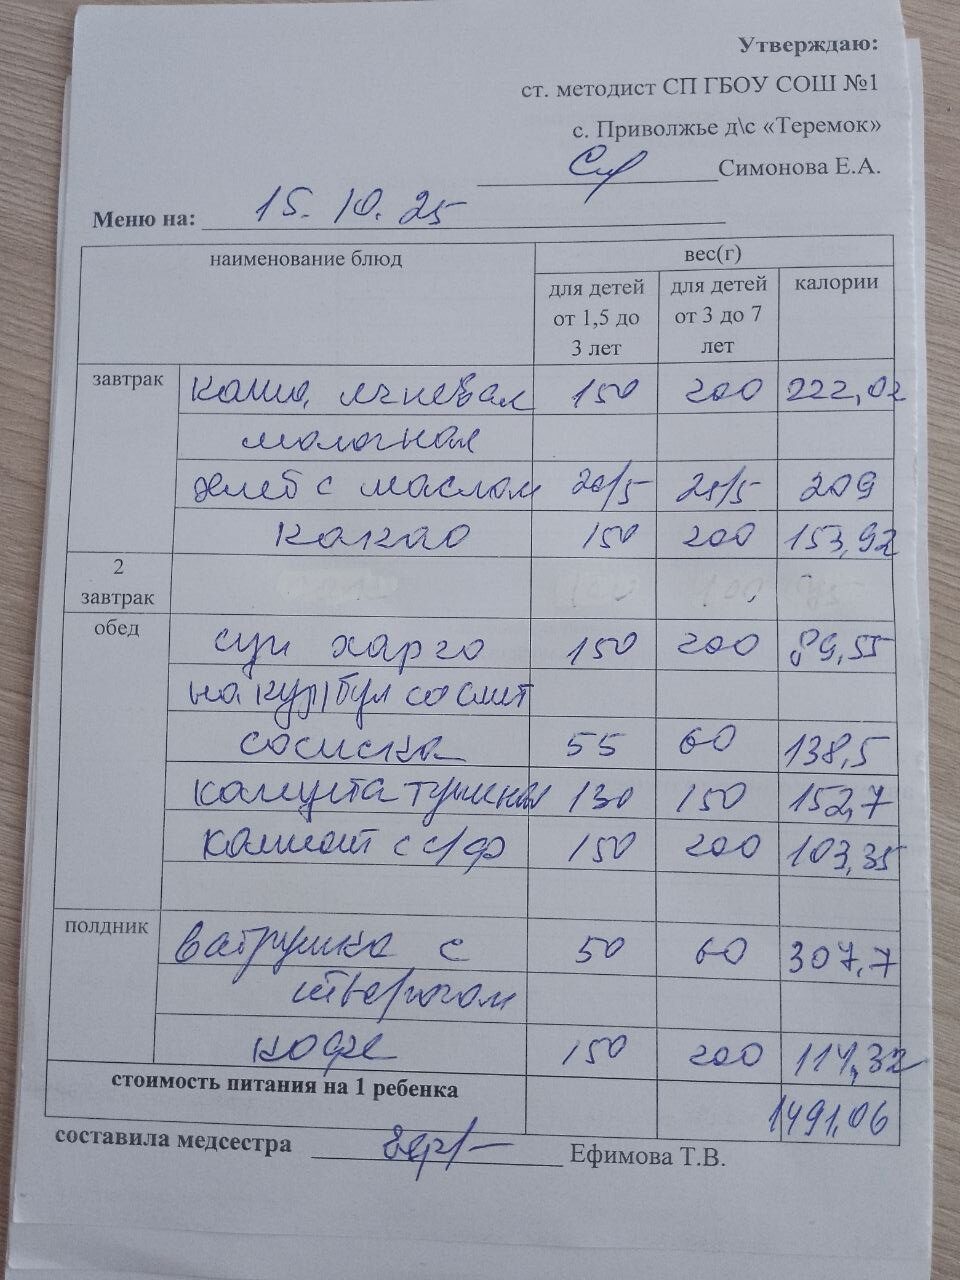 Утверждаю:
ст. методист СП ГБОУ СОШ №1
с. Приволжье д\с «Теремок»
Симонова Е.А.
Меню на: 15.10.25
наименование блюд вес(г)
для детей от 1,5 до 3 лет для детей от 3 до 7 лет калории
завтрак каша ячневая 150 200 222,02
молочная
хлеб с маслом 20/5 25/5 209
какао 150 200 153,92
2 завтрак
обед суп харчо 150 200 89,55
на кур/бул со смет
сосиска 55 60 138,5
капуста тушеная 130 150 152,7
компот с с/ф 150 200 103,35
полдник ватрушка с 50 60 307,7
творогом
кофе 150 200 114,32
стоимость питания на 1 ребенка 1491,06
составила медсестра Ефимова Т.В.